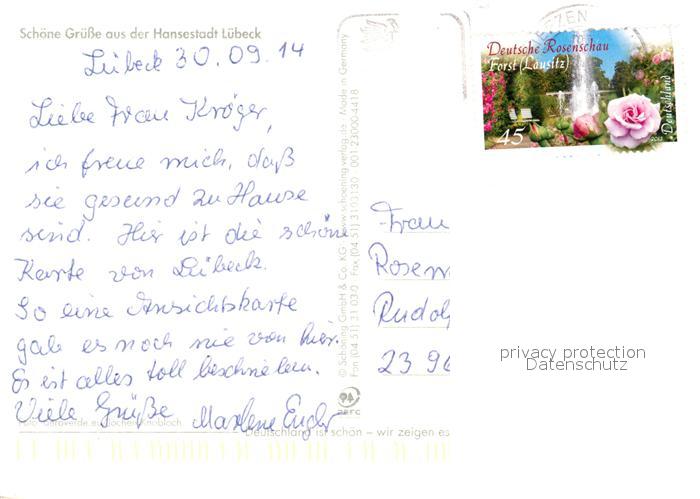 Schöne Grüße aus der Hansestadt Lübeck
Lübeck 30.09.14
Liebe Frau Kröger,
ich freue mich, daß
sie gesund zu Hause
sind. Hier ist die schöne
Karte von Lübeck.
So eine Ansichtskarte
gab es noch nie von hier.
Es ist alles toll beschrieben.
Viele Grüße Marlene Engler
Deutschland ist schön – wir zeigen es
© Schöning GmbH & Co. KG · www.schoening-verlag.de · Made in Germany
Fon (04 51) 31 03-0 · Fax (04 51) 3103130 · 001-23000-4418
Deutsche Rosenschau
Forst (Lausitz)
45
Deutschland
2013
Frau
Rosem
Rudol
23 96
privacy protection
Datenschutz